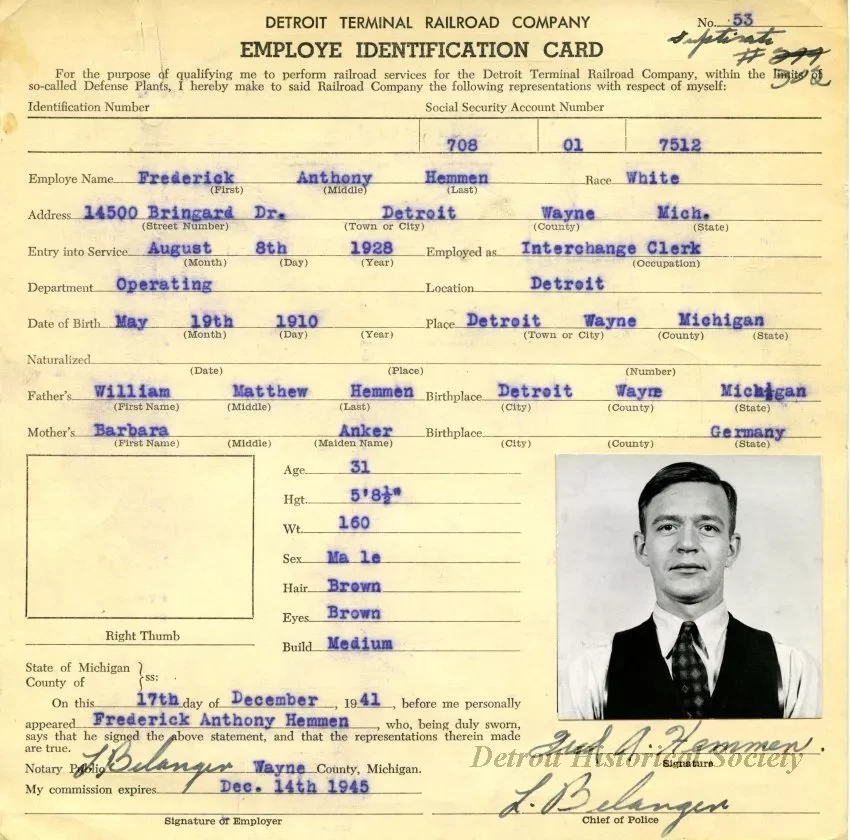 DETROIT TERMINAL RAILROAD COMPANY
No. 53
EMPLOYE IDENTIFICATION CARD
#
For the purpose of qualifying me to perform railroad services for the Detroit Terminal Railroad Company, within the limits of
so-called Defense Plants, I hereby make to said Railroad Company the following representations with respect of myself:
Identification Number Social Security Account Number
708 01 7512
Employe Name Frederick Anthony Hemmen Race White
(First) (Middle) (Last)
Address 14500 Bringard Dr. Detroit Wayne Mich.
(Street Number) (Town or City) (County) (State)
Entry into Service August 8th 1928 Employed as Interchange Clerk
(Month) (Day) (Year) (Occupation)
Department Operating Location Detroit
Date of Birth May 19th 1910 Place Detroit Wayne Michigan
(Month) (Day) (Year) (Town or City) (County) (State)
Naturalized
(Date) (Place) (Number)
Father's William Matthew Hemmen Birthplace Detroit Wayne Michigan
(First Name) (Middle) (Last) (City) (County) (State)
Mother's Barbara Anker Birthplace Germany
(First Name) (Middle) (Maiden Name) (City) (County) (State)
Age 31
Hgt. 5'8½"
Wt. 160
Sex Ma le
Hair Brown
Eyes Brown
Build Medium
Right Thumb
State of Michigan
County of } ss:
On this 17th day of December, 1941, before me personally
appeared Frederick Anthony Hemmen, who, being duly sworn,
says that he signed the above statement, and that the representations therein made
are true.
Fred A. Hemmen.
Detroit Historical Society
Signature
L. Belanger
Notary Public Wayne County, Michigan.
My commission expires Dec. 14th 1945
L. Belanger
Signature of Employer Chief of Police